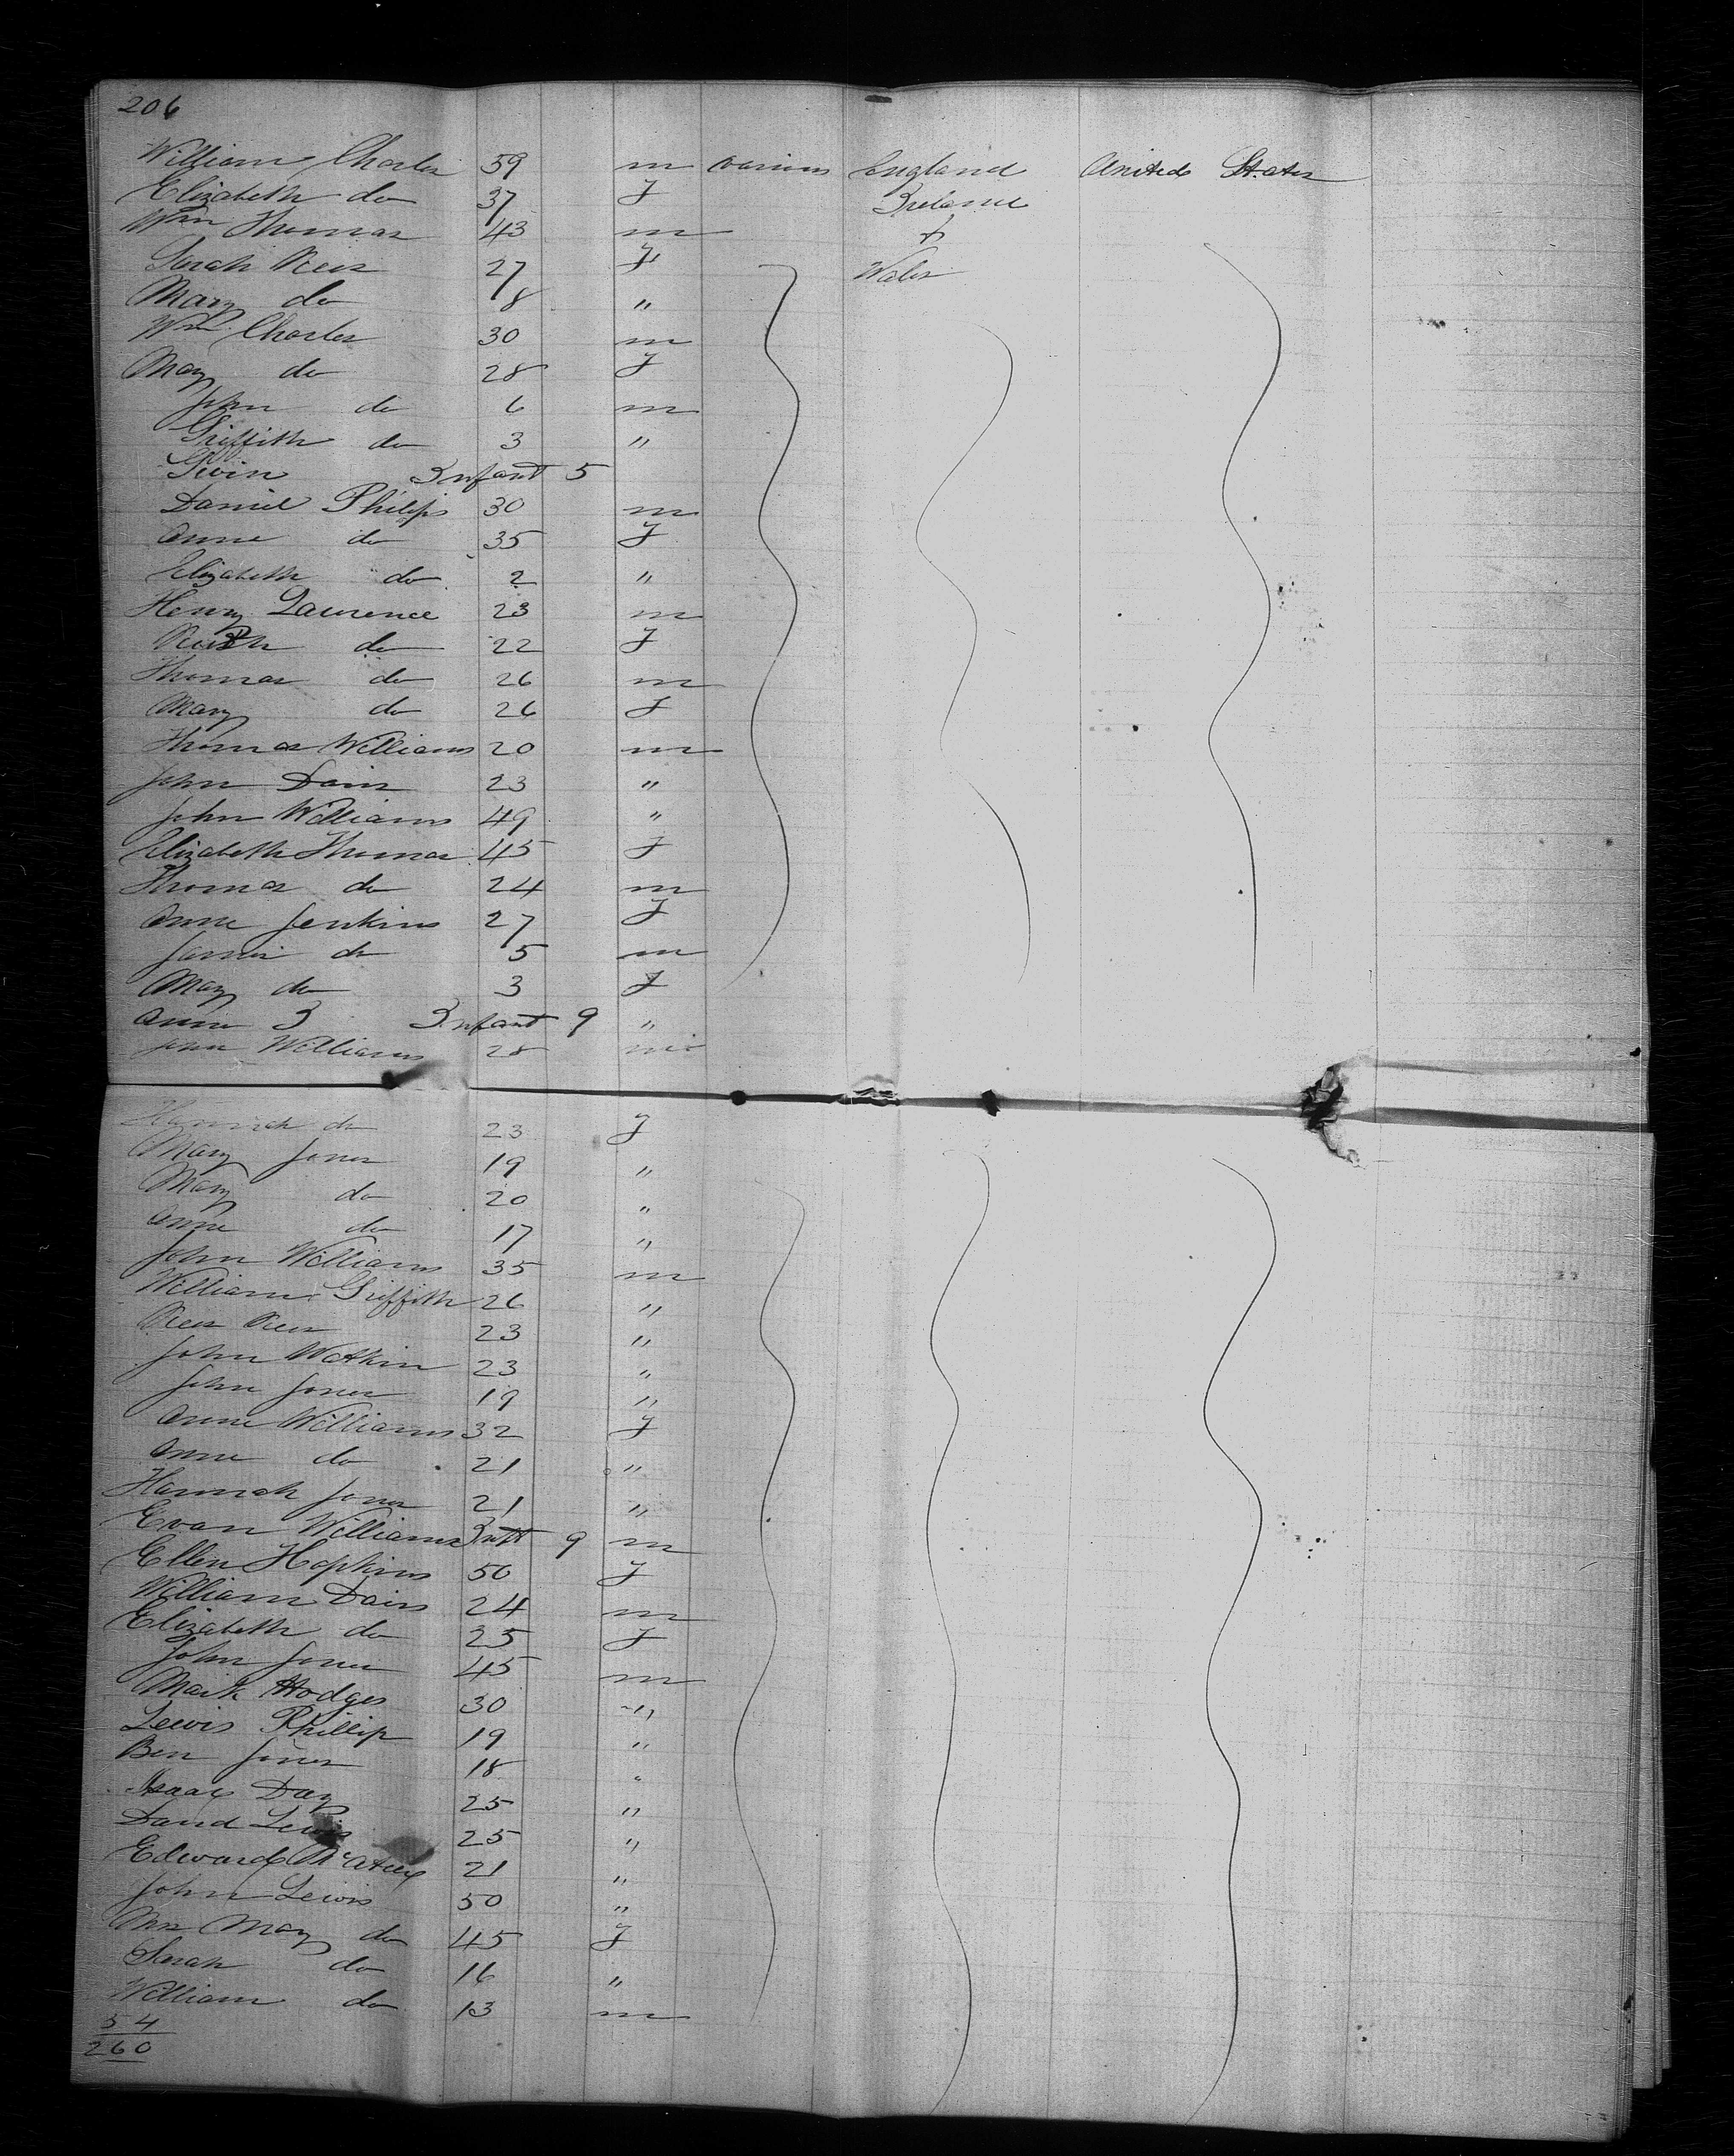 206
William Charles 59 m various England United States
Elizabeth do 37 f Ireland
Wm Thomas 43 m
Sarah Rees 27 f Wales
Mary do 8 "
Wm Charles 30 m
Mary do 28 f
John do 6 m
Griffith do 3 "
Gwin Infant 5
Daniel Philips 30 m
Anne do 35 f
Elizabeth do 2 "
Henry Laurence 23 m
do 22 f
Thomas do 26 m
Mary do 26 f
Thomas Williams 20 m
John Davis 23 "
John Williams 49 "
Elizabeth Thomas 45 f
Thomas do 24 m
Anne Jenkins 27 f
do 5 m
Mary do 3 f
Infant 9 "
John Williams 28 m
Hannah do 23 f
Mary Jones 19 "
Mary do 20 "
Anne do 17 "
John Williams 35 m
William Griffith 26 "
Rees Rees 23 "
John Watkin 23 "
John Jones 19 "
Anne Williams 32 f
Anne do 21 "
Hannah Jones 21 "
Evan Williams Inft 9 m
Ellen Hopkins 50 f
William Davis 24 m
Elizabeth do 25 f
John Jones 45 m
Mark Hodges 30 "
Lewis Phillip 19 "
Ben Jones 18 "
Isaac Day 25 "
David Lewis 25 "
Edward 21 "
John Lewis 50 "
Mrs Mary do 45 f
Sarah do 16 "
William do 13 m
54
260